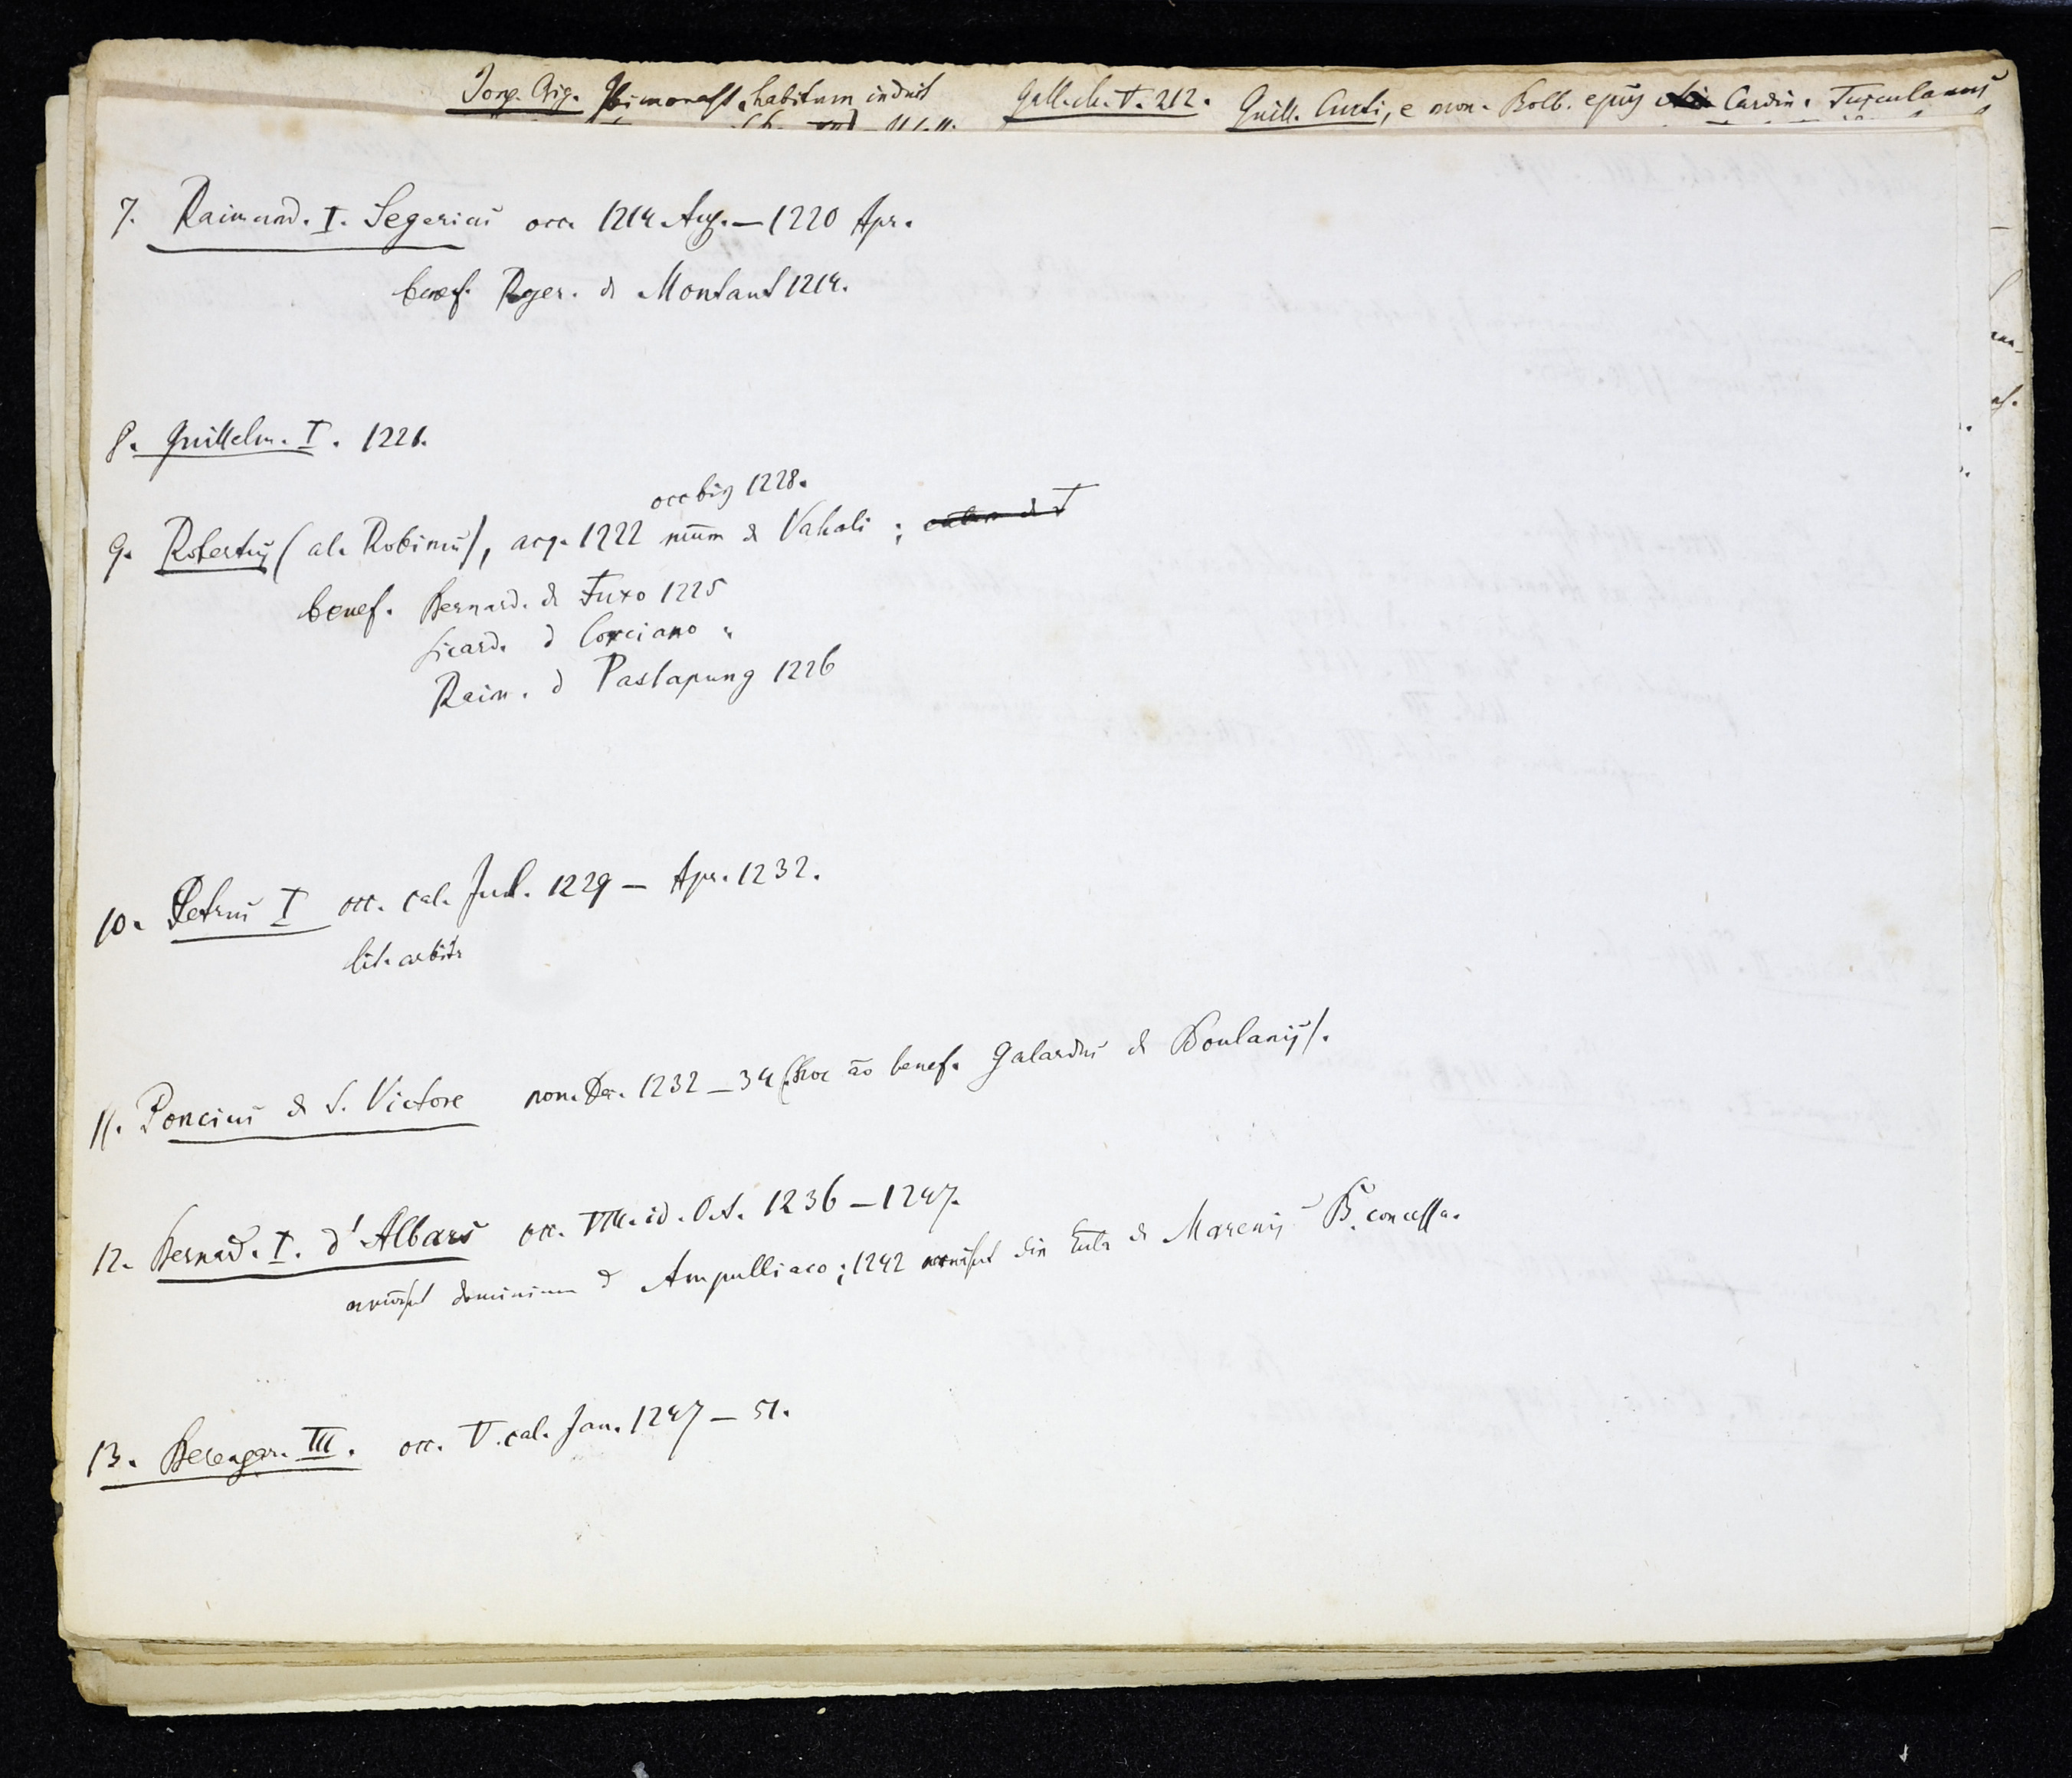 Jong. Orig. Hbi monast. habitum induit Gall. ch. V. 212. Guill. Curti, e mon. Bolb. epus Cardin. Tusculanus
7. Raimund. I. Segerius occ. 1214 Aug. — 1220 Apr.
benef. Roger. d Montaut 1214.
8. Guillelm. I. 1221.
occ big 1228.
9. Robertus (al. Robinus), acq. 1222 mum d Vahali;
benef. Bernard. d Fuxo 1225
Sicard. d Corciano "
Raim. d Pastapung 1226
10. Petrus I occ. cal. Jul. 1229 — Apr. 1232.
lit. arbitr
11. Poncius d S. Victore non. Dec. 1232 — 34 (hoc ao benef. Galardus d Boulanis).
12. Bernard. I. d'Albars occ. VIII. id. Oct. 1236 — 1247.
dominium d Ampulliaco; 1242 d Marenis B. concessa.
13. Berenger. III. occ. V. cal. Jan. 1247 — 51.